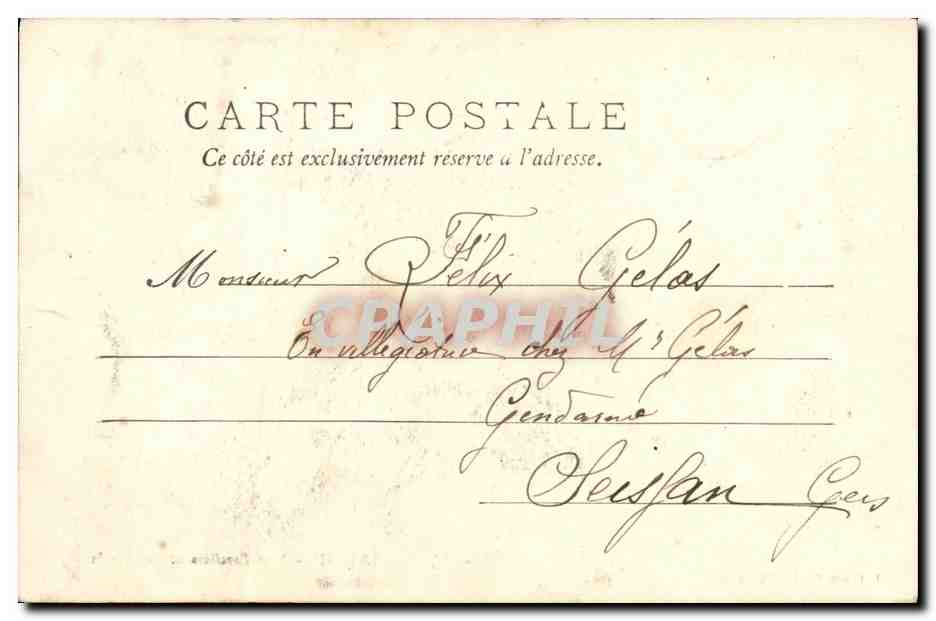 CARTE POSTALE
Ce côté est exclusivement réservé à l'adresse.
Monsieur Félix Gélas
CPAPHIL
En villégiature chez Mr Gélas
Gendarme
Seissan Gers